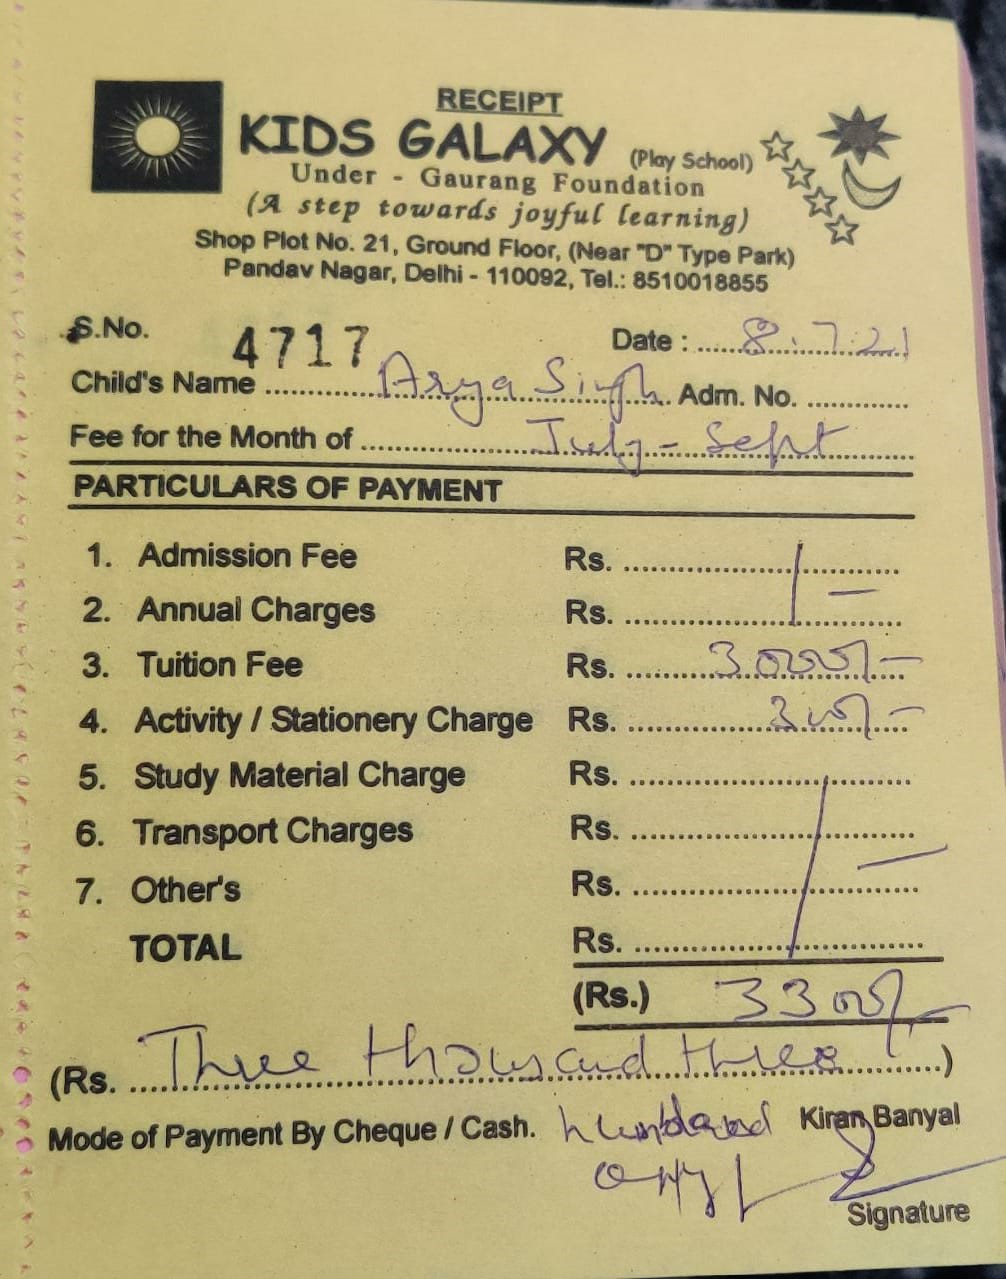 RECEIPT
KIDS GALAXY (Play School)
Under - Gaurang Foundation
(A step towards joyful learning)
Shop Plot No. 21, Ground Floor, (Near "D" Type Park)
Pandav Nagar, Delhi - 110092, Tel.: 8510018855
S.No. 4717 Date : 8.7.21
Child's Name Arya Singh Adm. No.
Fee for the Month of July - Sept
PARTICULARS OF PAYMENT
1. Admission Fee Rs.
2. Annual Charges Rs.
3. Tuition Fee Rs. 3000/-
4. Activity / Stationery Charge Rs. 300/-
5. Study Material Charge Rs.
6. Transport Charges Rs.
7. Other's Rs.
TOTAL Rs.
(Rs.) 3300/-
(Rs. Three thousand three)
Mode of Payment By Cheque / Cash. hundred Kiran Banyal
only
Signature